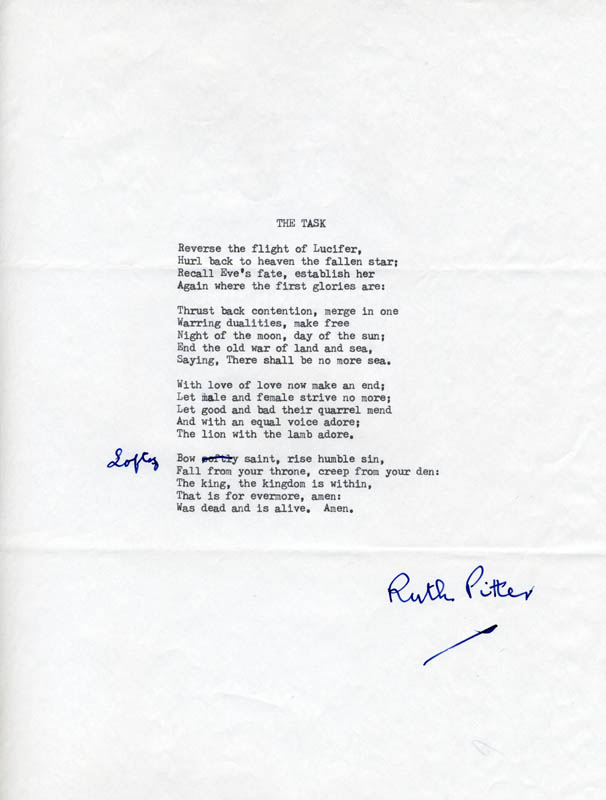 THE TASK
Reverse the flight of Lucifer,
Hurl back to heaven the fallen star;
Recall Eve's fate, establish her
Again where the first glories are:
Thrust back contention, merge in one
Warring dualities, make free
Night of the moon, day of the sun;
End the old war of land and sea,
Saying, There shall be no more sea.
With love of love now make an end;
Let male and female strive no more;
Let good and bad their quarrel mend
And with an equal voice adore;
The lion with the lamb adore.
Lofty Bow softly saint, rise humble sin,
Fall from your throne, creep from your den:
The king, the kingdom is within,
That is for evermore, amen:
Was dead and is alive. Amen.
Ruth Pitter